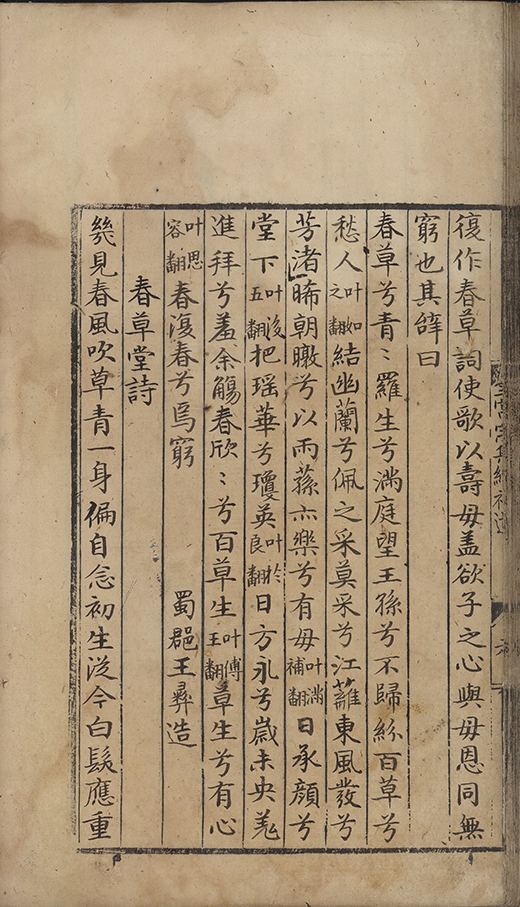 復作春草詞使歌以壽母盖欲子之心與母恩同無
窮也其辭曰
春草兮青〻羅生兮滿庭望王孫兮不歸絲百草兮
愁人叶如之翻結幽蘭兮佩之采莫采兮江蘺東風發兮
芳渚晞朝暾兮以雨蓀亦樂兮有母叶滿補翻日承顔兮
堂下叶後五翻把瑶華兮瓊英叶於良翻日方永兮歲未央羌
進拜兮羞余觴春欣〻兮百草生叶傅王翻草生兮有心
叶思容翻春復春兮烏窮
蜀郡王彞造
春草堂詩
幾見春風吹草青一身偏自念初生從今白髮應重